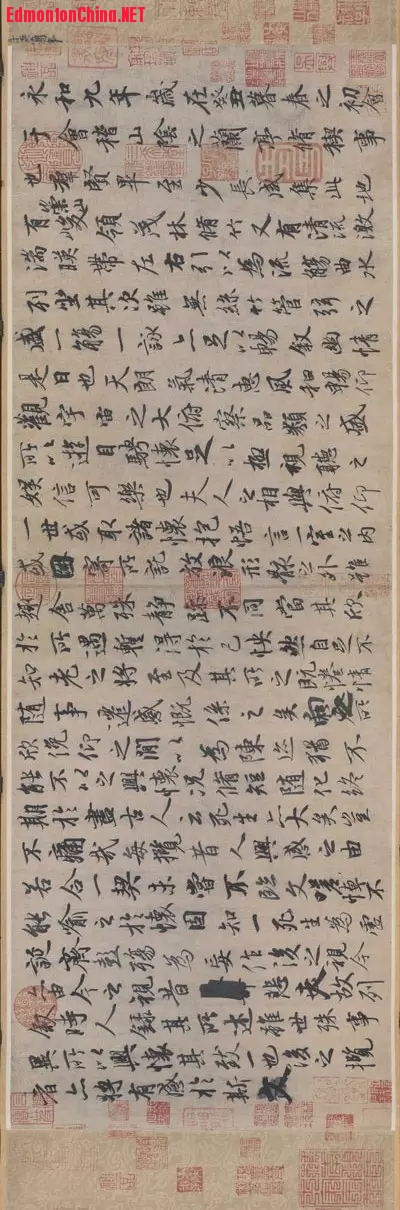 EdmontonChina.NET
永和九年歲在癸丑暮春之初會
于會稽山陰之蘭亭脩稧事
也羣賢畢至少長咸集此地
有崇山峻領茂林脩竹又有清流激
湍暎帶左右引以為流觴曲水
列坐其次雖無絲竹管弦之
盛一觴一詠亦足以暢敘幽情
是日也天朗氣清惠風和暢仰
觀宇宙之大俯察品類之盛
所以遊目騁懷足以極視聽之
娛信可樂也夫人之相與俯仰
一世或取諸懷抱悟言一室之內
或因寄所託放浪形骸之外雖
趣舍萬殊靜躁不同當其欣
於所遇暫得於己怏然自足不
知老之將至及其所之既惓情
隨事遷感慨係之矣向之所
欣俛仰之間以為陳迹猶不
能不以之興懷況脩短隨化終
期於盡古人云死生亦大矣豈
不痛哉每攬昔人興感之由
若合一契未嘗不臨文嗟悼不
能喻之於懷固知一死生為虛
誕齊彭殤為妄作後之視今
亦由今之視昔悲夫故列
敘時人錄其所述雖世殊事
異所以興懷其致一也後之攬
者亦將有感於斯文